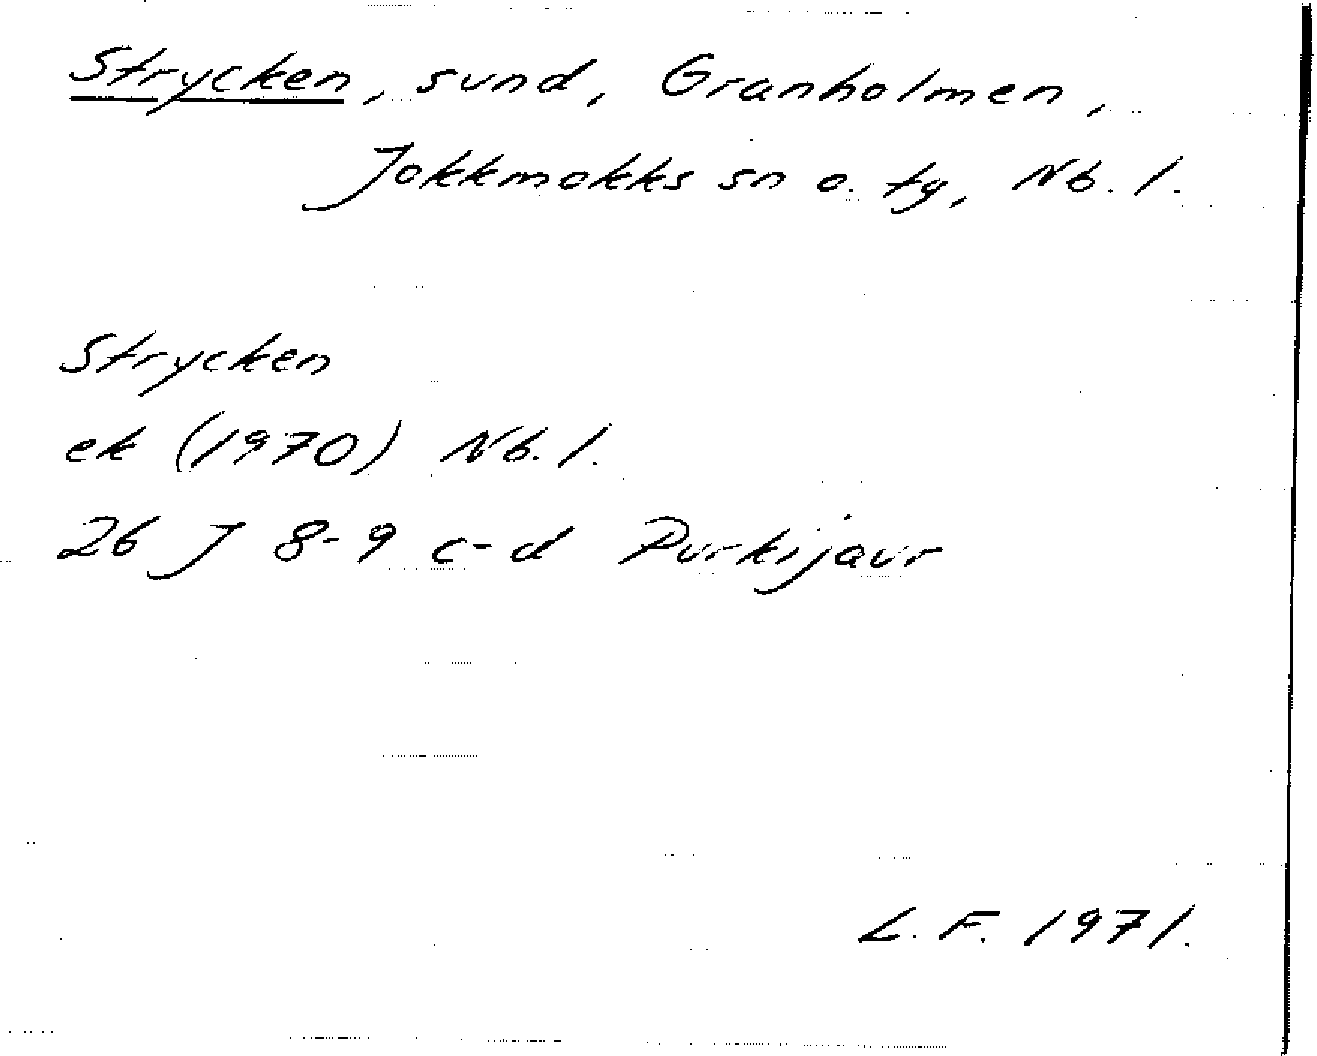 Strycken, sund, Granholmen,
Jokkmokks sn o. tg, Nb. l.
Strycken
ek (1970) Nb. l.
26 J 8-9 c-d Purkijaur
L. F. 1971.